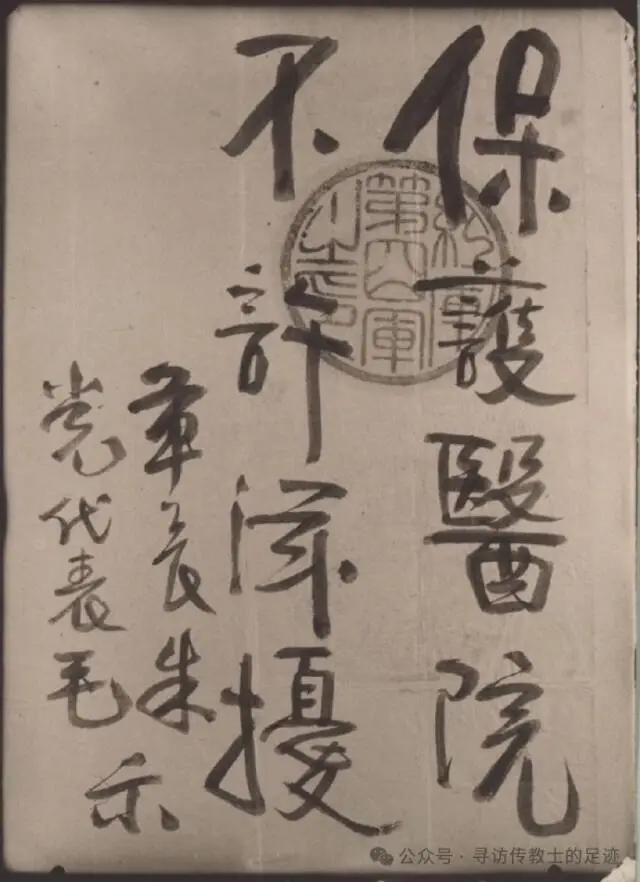 保護醫院
不許滋擾
軍長朱
党代表毛
示
紅軍
第四軍
公众号·寻访传教士的足迹